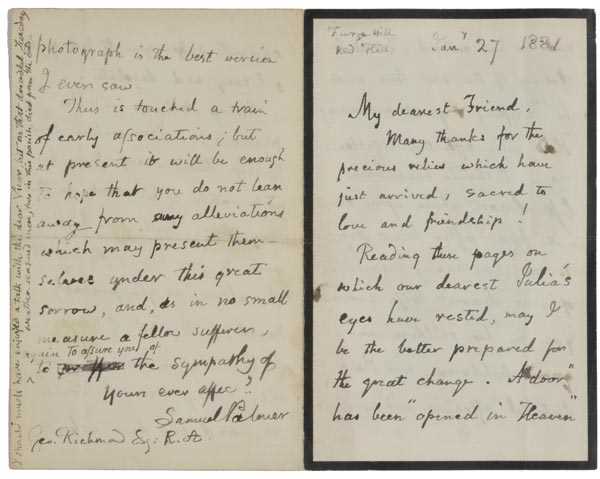 Furze Hill
Red Hill
Jan^y 27 1881
My dearest Friend,
Many thanks for the
precious relics which have
just arrived, sacred to
love and friendship!
Reading those pages on
which our dearest Julia's
eyes have rested, may I
be the better prepared for
the great change. A "door"
has been "opened in Heaven"
photograph is the best version
I ever saw.
Thus is touched a train
of early associations; but
at present it will be enough
to hope that you do not lean
away from any alleviations
which may present them-
selves under this great
sorrow, and, as in no small
measure a fellow sufferer,
again to assure you of
to the sympathy of
Yours ever affec^t
Samuel Palmer
Geo. Richmond Esq: R.A
I must have enjoyed a talk with the dear Vicar, but on that dreadful Tuesday
another aged man, in this parish died from the cold.